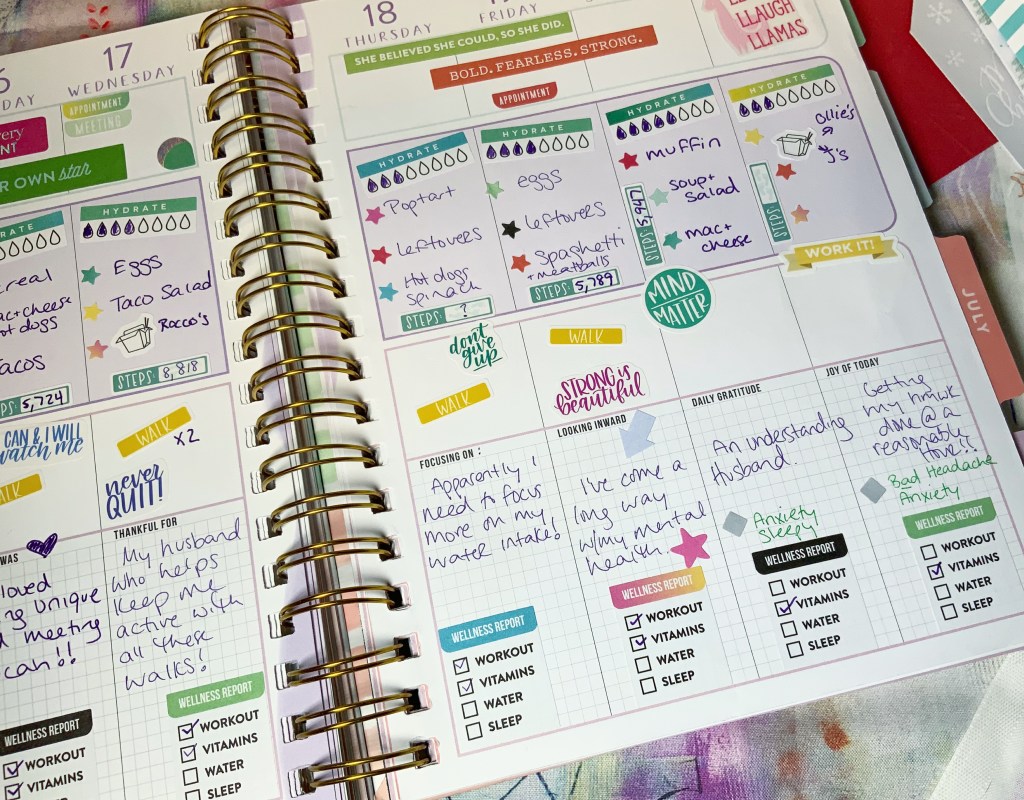 17
WEDNESDAY
APPOINTMENT
MEETING
OWN star
HYDRATE
HYDRATE
Eggs
Taco Salad
Rocco's
STEPS: 8,818
hot dogs
Tacos
5,724
CAN & I WILL
watch me
WALK
X2
never
QUIT!
WAS
loved
unique
meeting
can!!
THANKFUL FOR
My husband
who helps
keep me
active with
all these
walks!
WELLNESS REPORT
WORKOUT
VITAMINS
WELLNESS REPORT
WORKOUT
VITAMINS
WATER
SLEEP
18
THURSDAY
FRIDAY
SHE BELIEVED SHE COULD, SO SHE DID.
BOLD. FEARLESS. STRONG.
APPOINTMENT
LLAUGH
LLAMAS
HYDRATE
Poptart
Leftovers
Hot dogs
spinach
STEPS: ?
HYDRATE
eggs
leftovers
Spaghetti
+ meatballs
STEPS: 5,789
HYDRATE
muffin
soup +
salad
mac +
cheese
STEPS: 5,947
HYDRATE
Ollie's
J's
STEPS:
don't
give
up
WALK
WALK
STRONG is
beautiful
MIND
MATTER
WORK IT!
FOCUSING ON:
Apparently I
need to focus
more on my
water intake!
WELLNESS REPORT
WORKOUT
VITAMINS
WATER
SLEEP
LOOKING INWARD
I've come a
long way
w/my mental
health
WELLNESS REPORT
WORKOUT
VITAMINS
WATER
SLEEP
DAILY GRATITUDE
An understanding
Husband.
Anxiety
Sleepy
WELLNESS REPORT
WORKOUT
VITAMINS
WATER
SLEEP
JOY OF TODAY
Getting
my hmwk
done @ a
reasonable
time!!
Bad Headache
Anxiety
WELLNESS REPORT
WORKOUT
VITAMINS
WATER
SLEEP
JULY